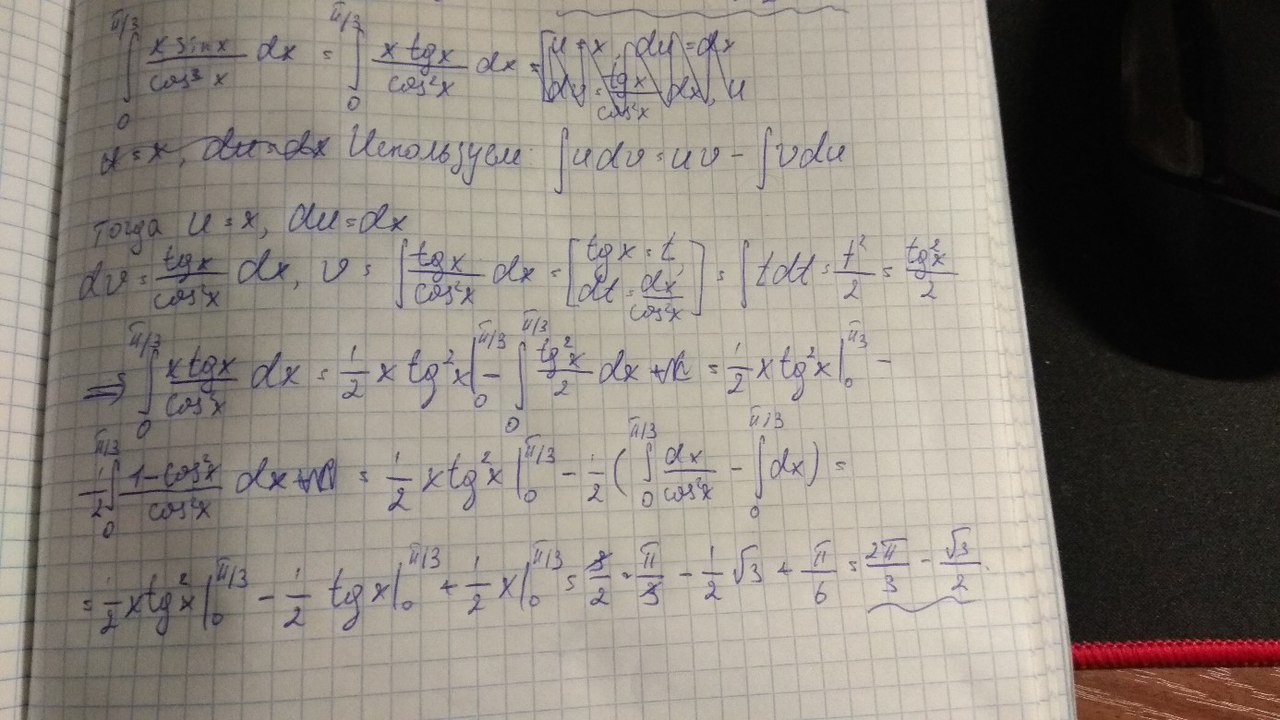 ∫₀^{π/3} x sin x / cos³x dx = ∫₀^{π/3} x tg x / cos²x dx = [u = x, du = dx dv = tg x / cos²x dx, u
u = x, du = dx Используем ∫ u dv = uv - ∫ v du
Тогда u = x, du = dx
dv = tg x / cos²x dx, v = ∫ tg x / cos²x dx = [tg x = t dt = dx / cos²x] = ∫ t dt = t²/2 = tg²x / 2
⇒ ∫₀^{π/3} x tg x / cos²x dx = 1/2 x tg²x |₀^{π/3} - ∫₀^{π/3} tg²x / 2 dx = 1/2 x tg²x |₀^{π/3} -
1/2 ∫₀^{π/3} 1 - cos²x / cos²x dx = 1/2 x tg²x |₀^{π/3} - 1/2 ( ∫₀^{π/3} dx / cos²x - ∫₀^{π/3} dx ) =
= 1/2 x tg²x |₀^{π/3} - 1/2 tg x |₀^{π/3} + 1/2 x |₀^{π/3} = 3/2 · π/3 - 1/2 √3 + π/6 = 2π/3 - √3/2.